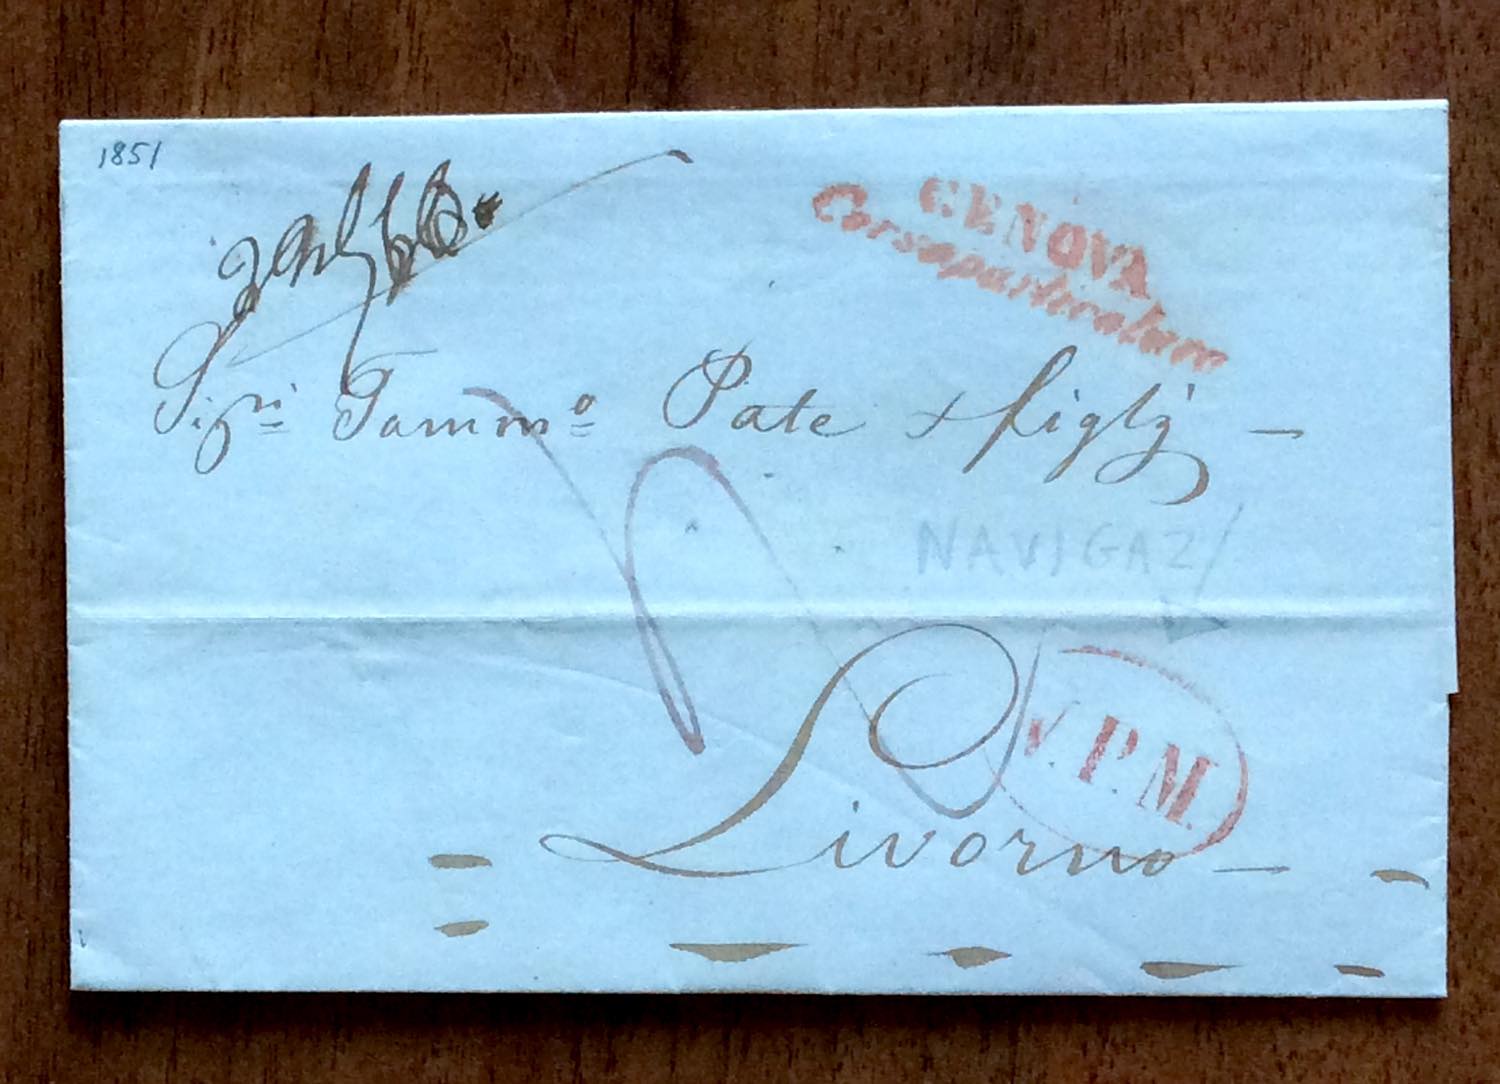 1851
GENOVA
Corsoparticolare
Sigri Tammo Pate & figlj —
NAVIGAZ
V.P.M.
Livorno —